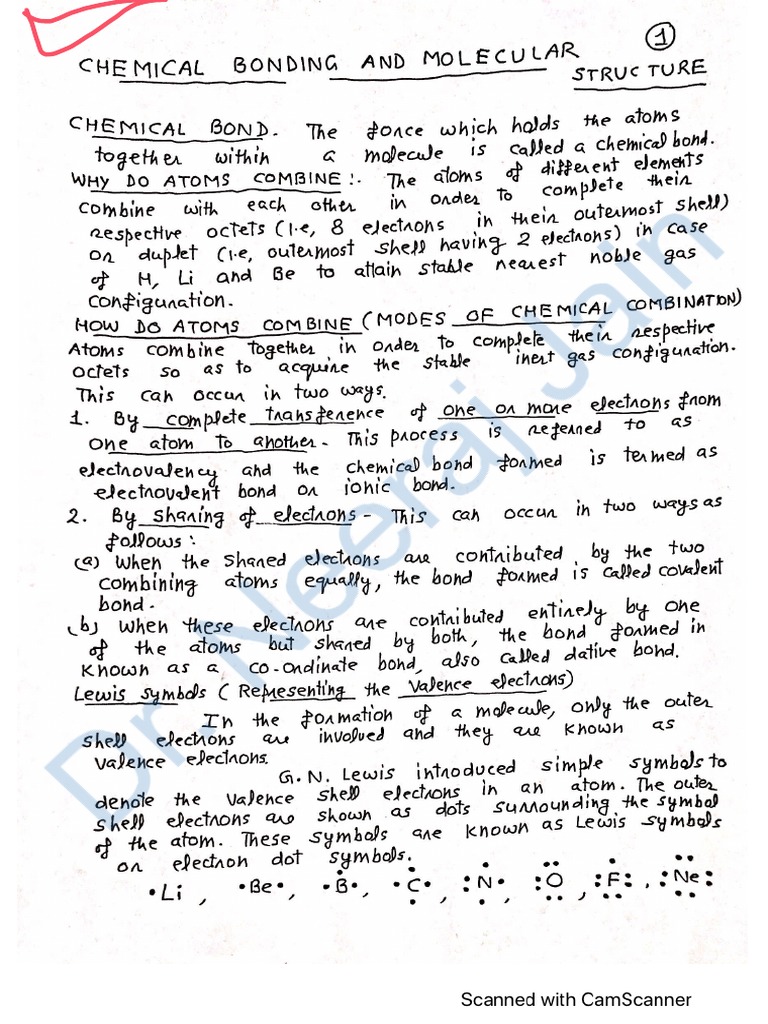 1
CHEMICAL BONDING AND MOLECULAR
STRUCTURE
CHEMICAL BOND. The force which holds the atoms
together within a molecule is called a chemical bond.
WHY DO ATOMS COMBINE:- The atoms of different elements
combine with each other in order to complete their
respective octets (i.e, 8 electrons in their outermost shell)
or duplet (i.e, outermost shell having 2 electrons) in case
of H, Li and Be to attain stable nearest noble gas
configuration.
HOW DO ATOMS COMBINE (MODES OF CHEMICAL COMBINATION)
Atoms combine together in order to complete their respective
octets so as to acquire the stable inert gas configuration.
This can occur in two ways.
1. By complete transference of one or more electrons from
one atom to another. This process is referred to as
electrovalency and the chemical bond formed is termed as
electrovalent bond or ionic bond.
2. By sharing of electrons - This can occur in two ways as
follows:
(a) When the shared electrons are contributed by the two
combining atoms equally, the bond formed is called covalent
bond.
(b) When these electrons are contributed entirely by one
of the atoms but shared by both, the bond formed in
known as a co-ordinate bond, also called dative bond.
Lewis symbols (Representing the valence electrons)
In the formation of a molecule, only the outer
shell electrons are involved and they are known as
valence electrons.
G.N. Lewis introduced simple symbols to
denote the valence shell electrons in an atom. The outer
shell electrons are shown as dots surrounding the symbol
of the atom. These symbols are known as Lewis symbols
or electron dot symbols.
Li, Be, B, C, N, O, F, Ne
Dr. Neeraj Jain
Scanned with CamScanner